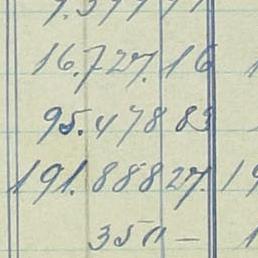 16.727.16
95.478 83
191.888 27.
350 —